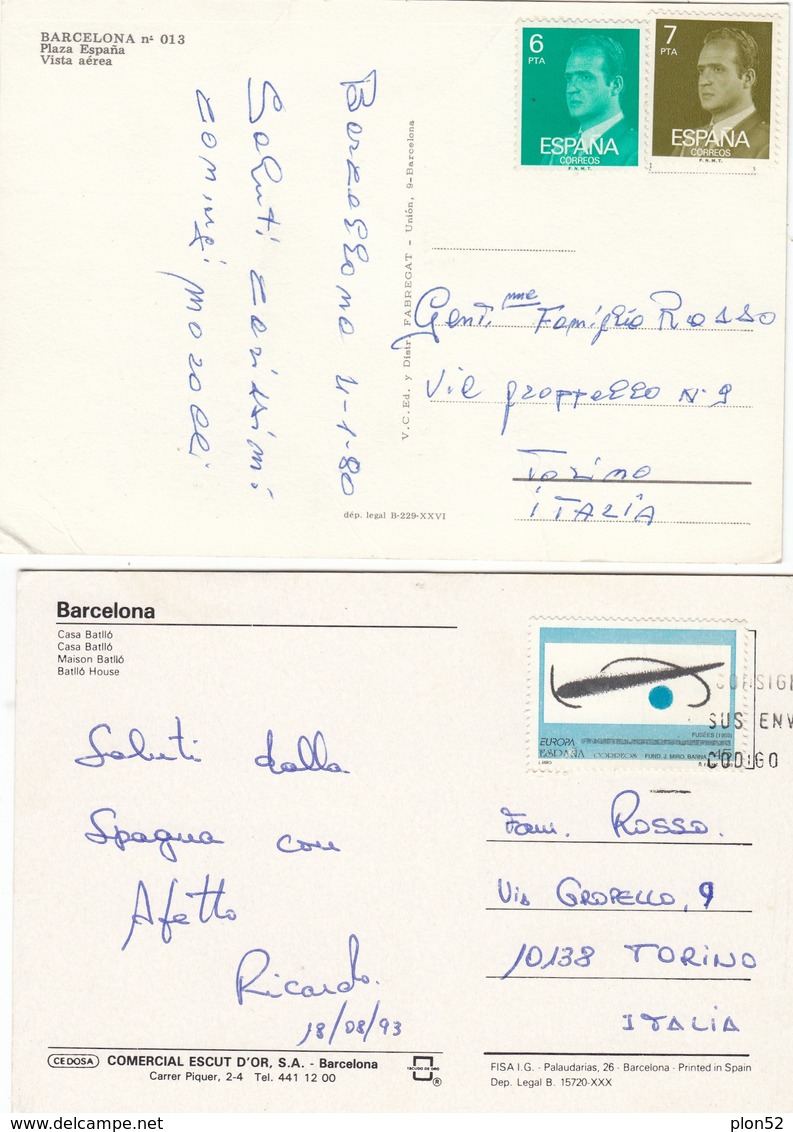 BARCELONA nº 013
Plaza España
Vista aérea
6
PTA
ESPAÑA
CORREOS
F.N.M.T.
7
PTA
ESPAÑA
CORREOS
F.N.M.T.
Barzellona 4-1-80
Saluti carissimi
V.C.Ed. y Distr. FABREGAT - Unión, 9-Barcelona
dép. legal B-229-XXVI
Gent.me Famiglia Rosso
Via N. 9
Torino
ITALIA
Barcelona
Casa Batlló
Casa Batlló
Maison Batlló
Batlló House
FUSÉES (1959)
EUROPA
ESPAÑA CORREOS FUND. J. MIRO. BARNA 45
J. MIRO
CONSIGN
SUS ENV
CODIGO
Saluti dalla
Spagna con
Afetto
Ricardo.
18/08/93
Fam. ROSSO.
Via GROPELLO, 9
10138 TORINO
ITALIA
CEDOSA COMERCIAL ESCUT D'OR, S.A. - Barcelona
Carrer Piquer, 2-4 Tel. 441 12 00
ESCUDO DE ORO
®
FISA I.G. - Palaudarias, 26 - Barcelona - Printed in Spain
Dep. Legal B. 15720-XXX
plon52